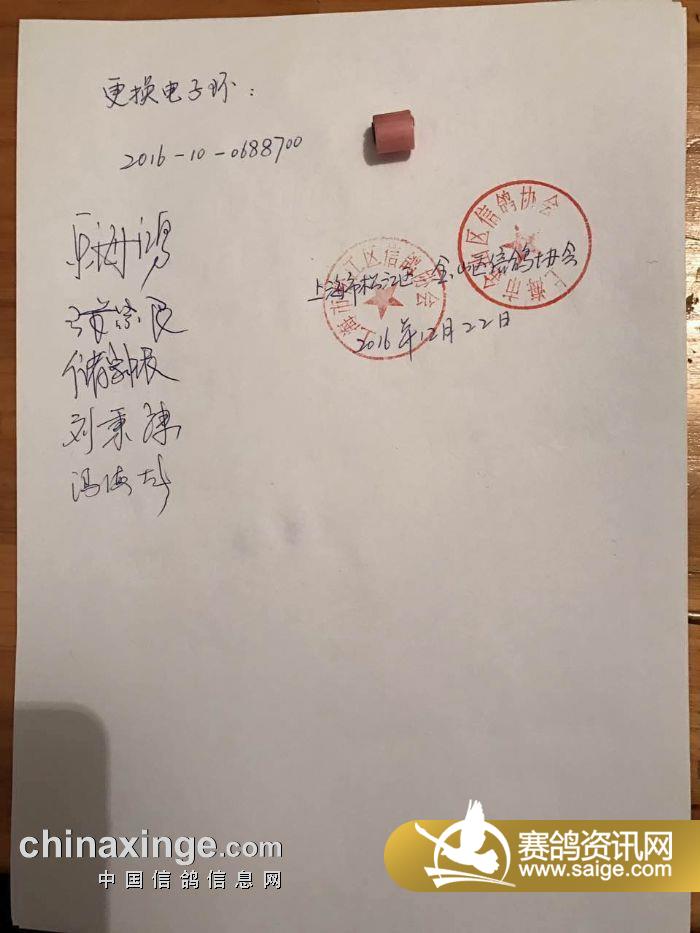 更换电子环：
2016-10-0688700
上海市松江区 金山区信鸽协会
2016年12月22日
上海市松江区信鸽协会
上海市金山区信鸽协会
刘秉
冯海
chinaxinge.com
中国信鸽信息网
赛鸽资讯网
www.saige.com